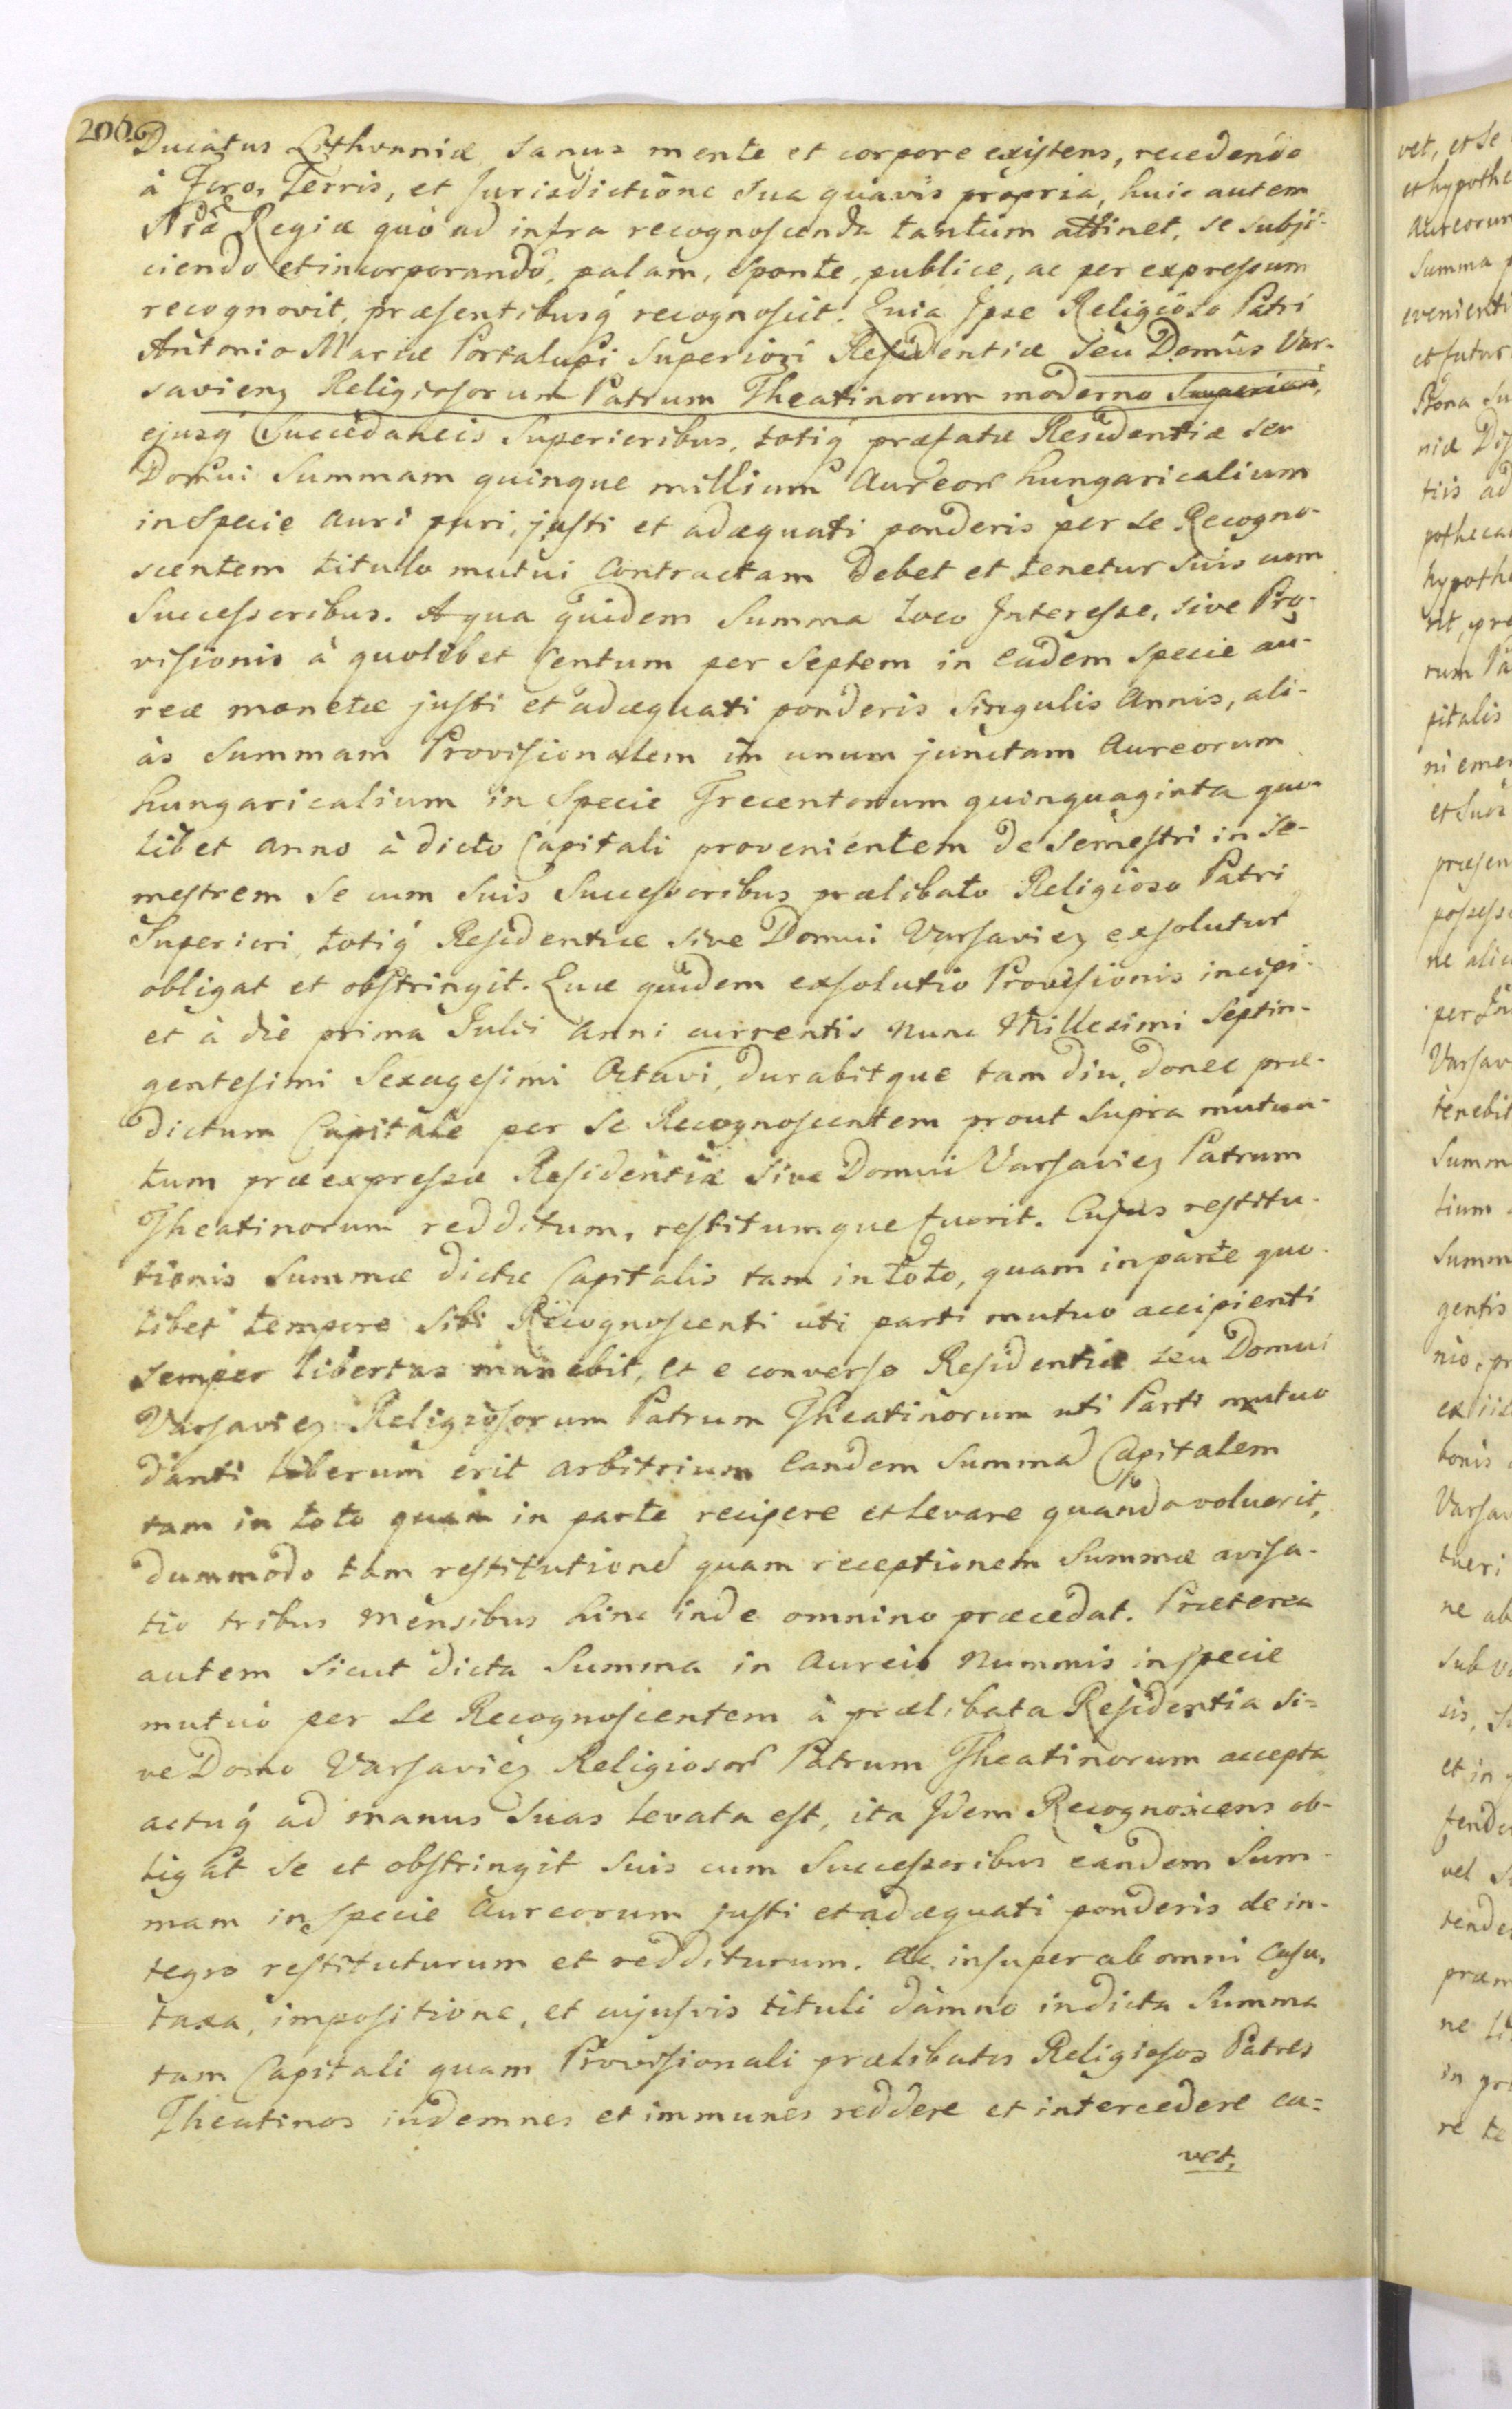 206
Ducatus Lithvaniæ sanus mente et corpore existens, recedendo
à Foro, Terris, et Jurisdictione sua quavis propria, huic autem
Nræ Regiæ quò ad infra recognoscenda tantum attinet, se subji-
ciendo et incorporando, palam, sponte, publice, ac per expressum
recognovit, præsentibusq́ recognoscit. Quia Ipse Religioso Patri
Antonio Mariæ Portalupi Superiori Residentiæ seu Domus Var-
savieñ Religiosorum Patrum Theatinorum moderno Superiori,
ejusq́ Succedaneis Superioribus, totiq́ præfatæ Residentiæ seu
Domui Summam quinque millium Aureor̃ hungaricalium
in Specie auri puri, justi et adæquati ponderis per se Recogno-
scentem titulo mutui Contractam Debet et tenetur suis cum
Successoribus. A qua quidem Summa loco Interesse, sive Pro-
visionis à quolibet Centum per Septem in eadem specie au-
reæ monetæ justi et adæquati ponderis singulis Annis, ali-
às Summam Provisionalem in unum junctam Aureorum
hungaricalium in Specie Trecentorum quinquaginta quo-
libet anno à dicto Capitali provenientem de semestri in se-
mestrem se cum suis Successoribus prælibato Religioso Patri
Superiori, totiq́ Residentiæ sive Domui Varsavieñ exsoluturũ
obligat et obstringit. Quæ quidem exsolutio Provisionis incipi-
et à die prima Julii Anni currentis nunc Millesimi Septin-
gentesimi Sexagesimi Octavi, durabitque tam diu, donec præ-
dictum Capitale per se Recognoscentem prout supra mutua-
tum præexpressæ Residentiæ sive Domui Varsavieñ Patrum
Theatinorum redditum, restitumque fuerit. Cujus restitu-
tionis Summæ dictæ Capitalis tam in toto, quam in parte quo-
libet tempore sibi Recognoscenti uti parti mutuo accipienti
semper libertas manebit, et e converso Residentiæ seu Domui
Varsavieñ Religiosorum Patrum Theatinorum uti Parti mutuo
danti liberum erit arbitrium eandem Summã Capitalem
tam in toto quam in parte recipere et levare quando voluerit,
dummodo tam restitutionẽ quam receptionem Summæ avisa-
tio tribus mensibus hinc inde omnino præcedat. Præterea
autem sicut dicta Summa in Aureis nummis in specie
mutuo per se Recognoscentem à prælibata Residentia si=
ve Domo Varsavieñ Religiosor̃ Patrum Theatinorum accepta
actuq́ ad manus suas levata est, ita Idem Recognoscens ob-
ligat se et obstringit suis cum Successoribus eandem Sum-
mam in specie Aureorum justi et adæquati ponderis de in-
tegro restituturum et redditurum. Ac insuper ab omni Casu,
taxa, impositione, et cujusvis tituli damno in dicta Summa
tam Capitali quam Provisionali prælibatos Religiosos Patres
Theatinos indemnes et immunes reddere et intercedere ca=
vet,
vet, et se
et hypothe
Aureorum
Summa
evenienti
et futur
Bona su
niæ Di
tiis ad
potheca
hypothe
rit, pr
rum Pa
pitalis
ni eme
et suos
præsen
possess
ne ali
per In
Varsav
tenebit
Summ
tium
Summ
gentis
nio, pr
bonis
Varsav
tueri
ne ab
sub
sis,
et in
fende
vel
tende
præm
ne
in
re te